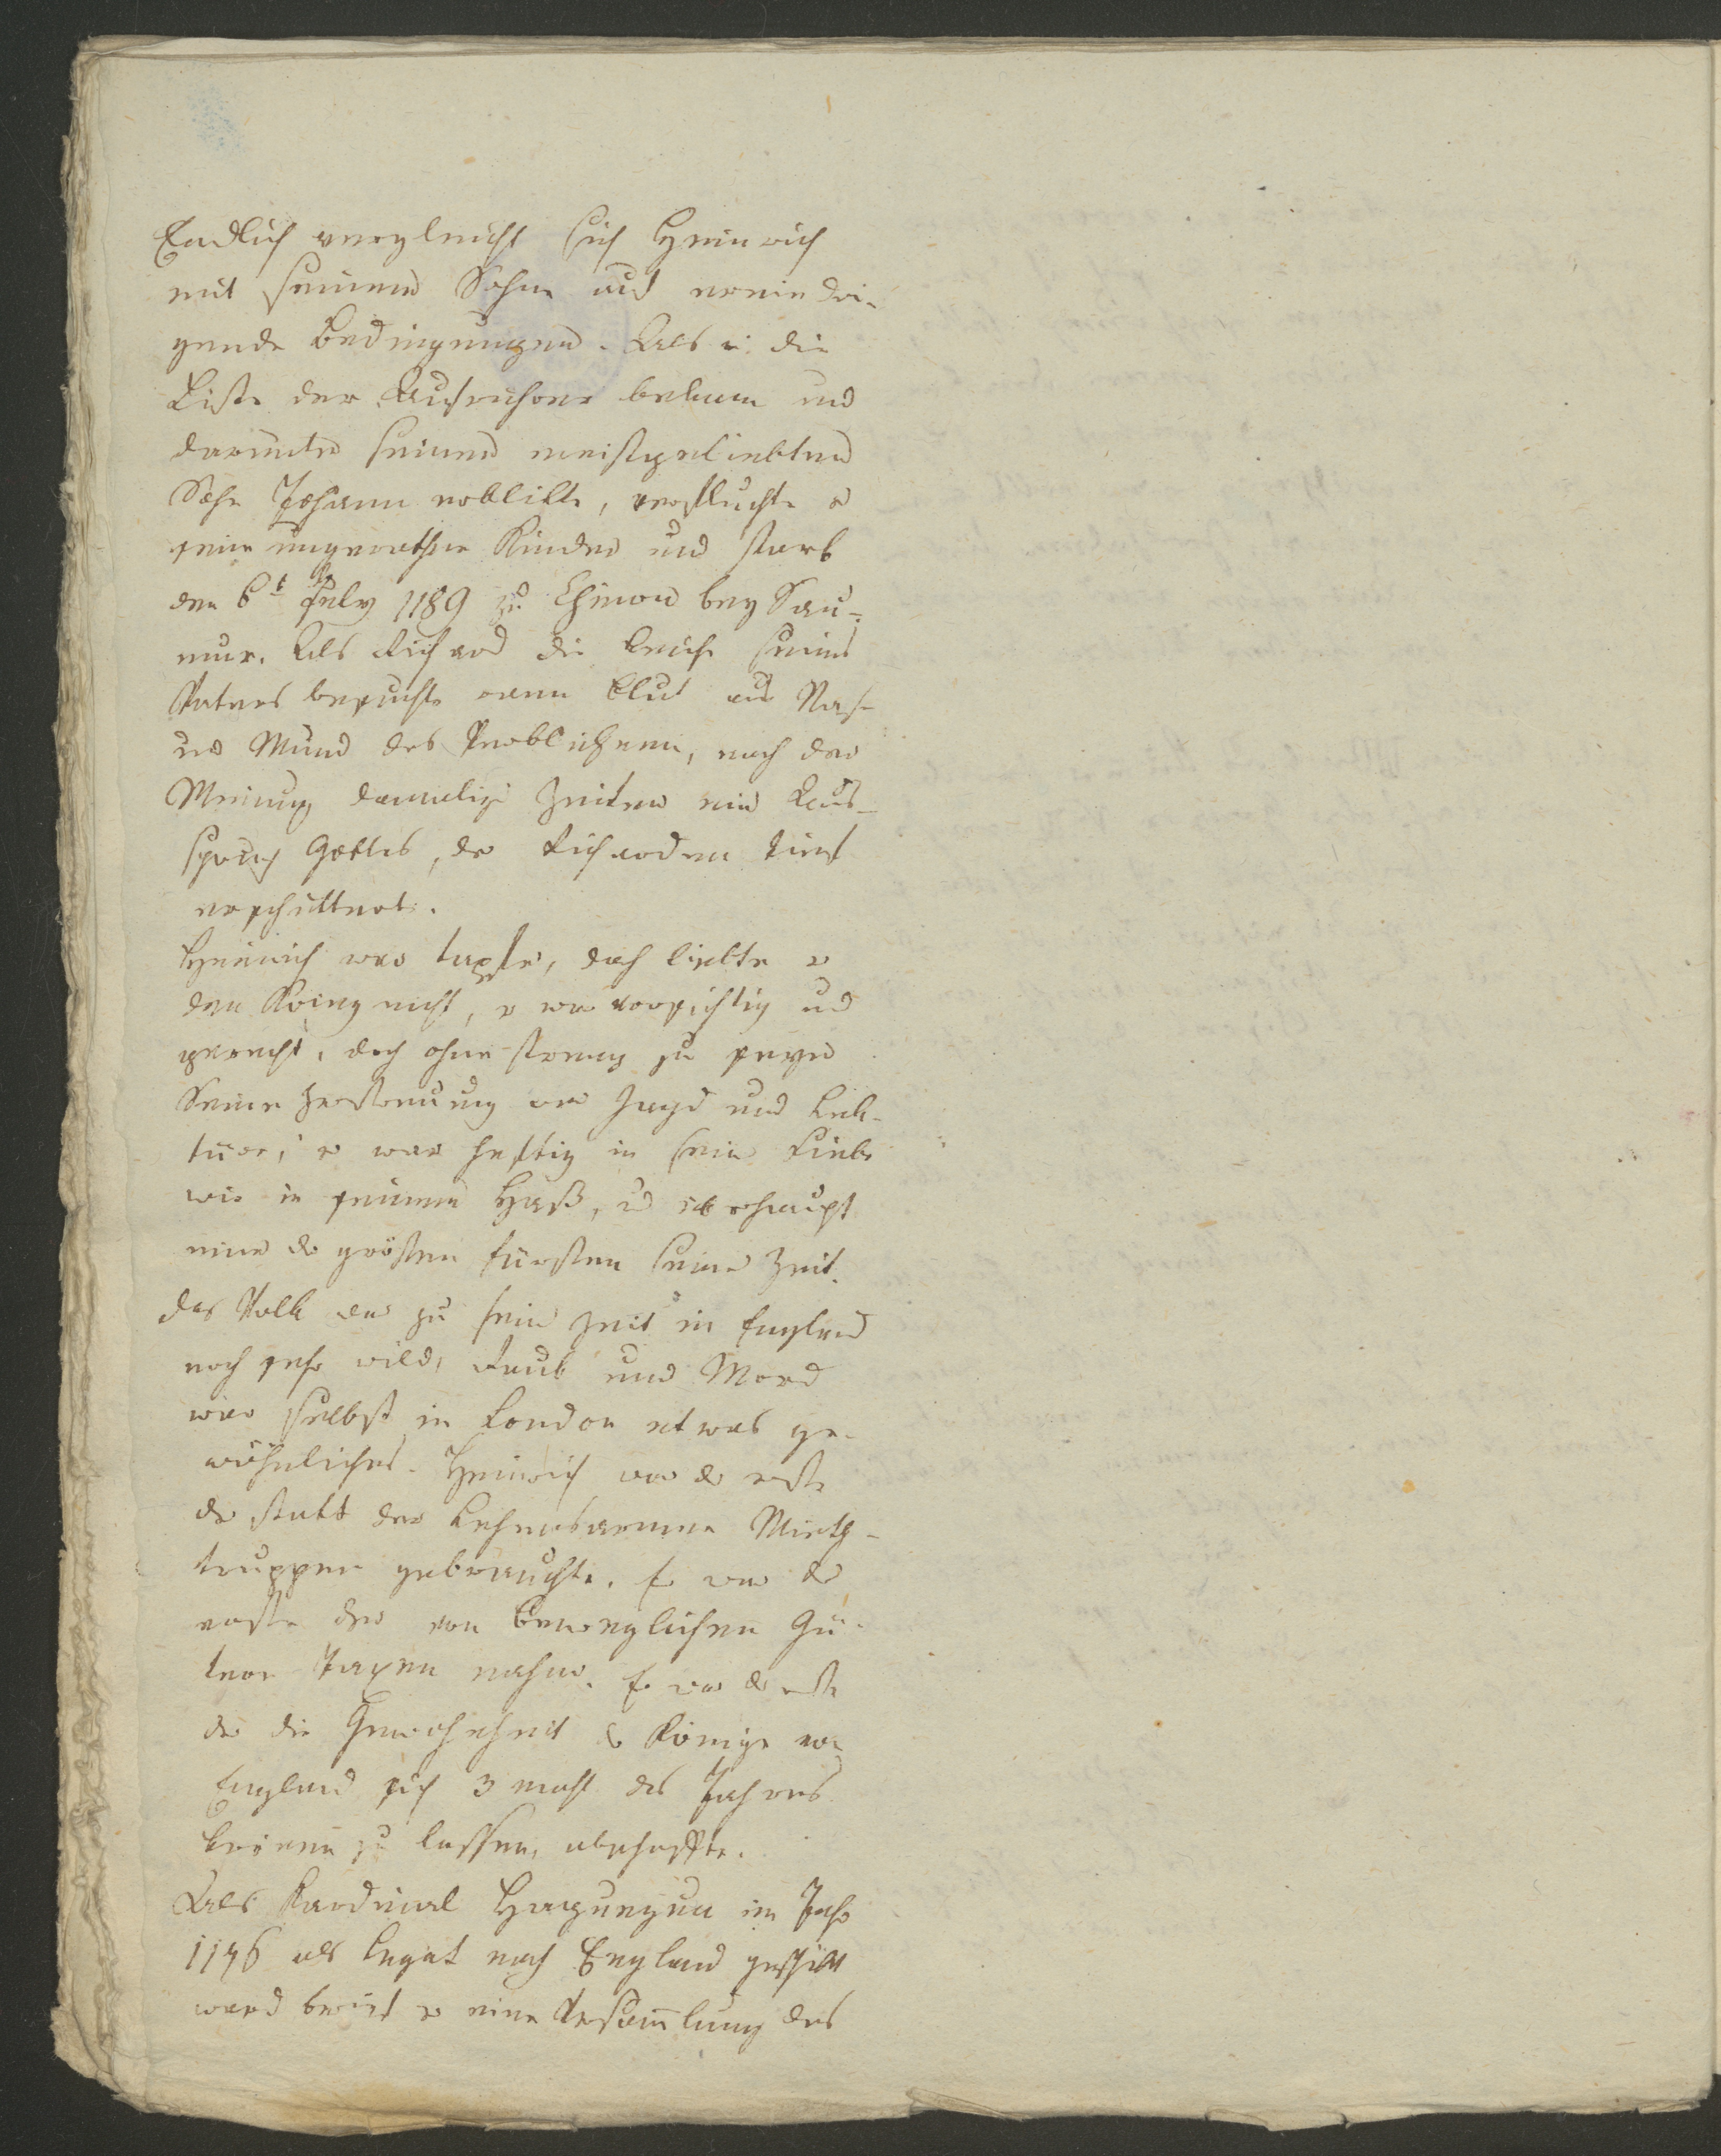 Endlich vergleicht sich Heinrich
mit seinem Sohne auf erniedri-
gende Bedingungen. Als er die
Liste der Aufrührer bekam und
darunter seinen meistgeliebten
Sohn Johann erblikte, verfluchte er
seine ungerathne Kinder und starb
den 6t July 1189 zu Chinon bey Sau-
mur. Als Richard die Leiche seines
Vaters besuchte rann Blut aus Nas
und Mund des Verblichenen, nach der
Meinung damaliger Zeiten ein Aus-
spruch Gottes, der Richarden tief
erschütterte.
Heinrich war tapfer, doch liebte er
den Krieg nicht, er war vorsichtig und
gerecht, doch ohne streng zu seyn
Seine Zerstreuung war Jagd und Lek-
türe; er war heftig in seiner Liebe
wie in seinem Haß, und überhaupt
einer der größten Fürsten seiner Zeit.
Das Volk war zu seiner Zeit in England
noch sehr wild, Raub und Mord
war selbst in London etwas ge-
wöhnliches. Heinrich war der erste
der statt der Lehensarmee Mieth-
truppen gebrauchte. Er war der
erste der von beweglichen Gü-
tern Taxen nahm. Er war der erste
der die Gewohnheit der Könige von
England sich 3 mahl des Jahres
krönen zu lassen, abschaffte.
Als Kardinal im Jahr
1176 als Legat nach England geschikt
ward berief er eine Versam̅lung des